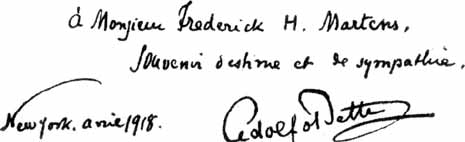 à Monsieur Frederick H. Martens,
souvenir d'estime et de sympathie.
New York. avril 1918. Adolfo Betti